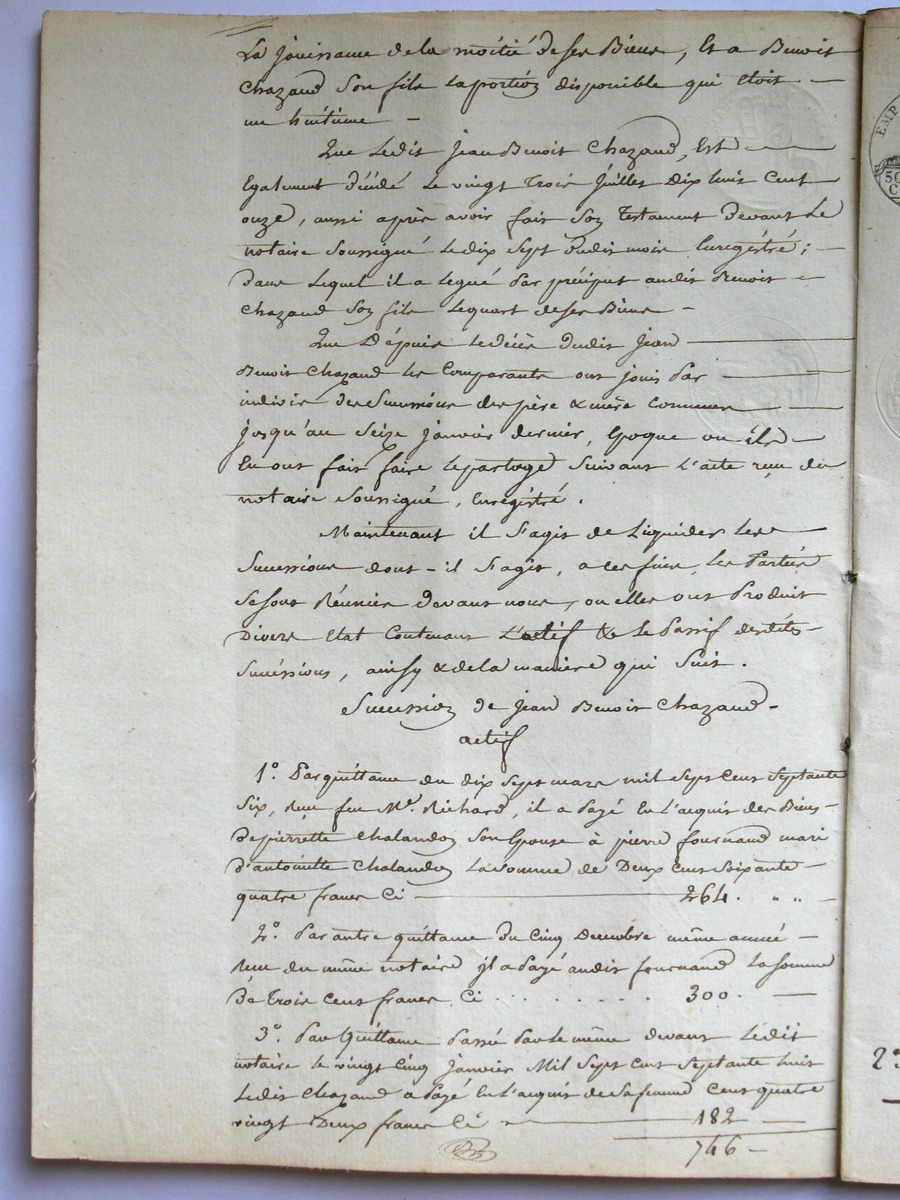 La jouissance de la moitié de ses Biens, Et a Benoit
Chazaud Son fils la portion disponible qui etoit
un huitieme
Que Ledit Jean Benoit Chazaud, Est
Egalement décédé Le vingt Trois Juillet Dix huit Cent
onze, aussi après avoir fait Son Testament Devant Le
notaire Soussigné Ledix Sept dudit mois Enregistré ;
Dans Lequel il a Legué Par préciput audit Benoit
Chazaud Son fils Lequart deses Biens
Que Dépuis Ledécès dudit Jean
Benoit Chazaud les Comparants ont joui Par
indivis des Successions des père & mère communs
jusqu'au Seize Janvier dernier, Epoque ou ils
En ont fait faire Lepartage Suivant L'acte reçu du
notaire Soussigné, Enregistré.
Maintenant il S'agit de Liquider Les
Successions dont-il S'agit, a ces fins, Les Parties
Sesont Réunies devant nous, ou elles ont Produit
Divers Etat Contenant L'actif & Le Passif desdites
Successions, ainsy & dela maniere qui Suit.
Succession de Jean Benoit Chazaud
actif
1º. Par quittance du dix Sept mars mil Sept Cent Septante
Six, Reçu feu Me. Richard, il a Payé En L'acquis des Biens
Depierrette Chalandon Son Epouse à pierre fournand mari
D'antoinette Chalandon La somme de Deux Cent Soixante
quatre francs Ci 264. " "
2º. Par autre quittance du Cinq Decembre même année
Reçue du même notaire jl a Payé audit fournand La Somme
De Trois Cent francs Ci . . . . . . . . 300.
3º. Par Quittance Passée Par le même devant Ledit
notaire Le vingt Cinq Janvier Mil Sept Cent Septante huit
Ledit Chazaud a Payé En L'acquis de Safemme Cent quatre
vingt Deux francs Ci 182
746
EMP
50
C
2º